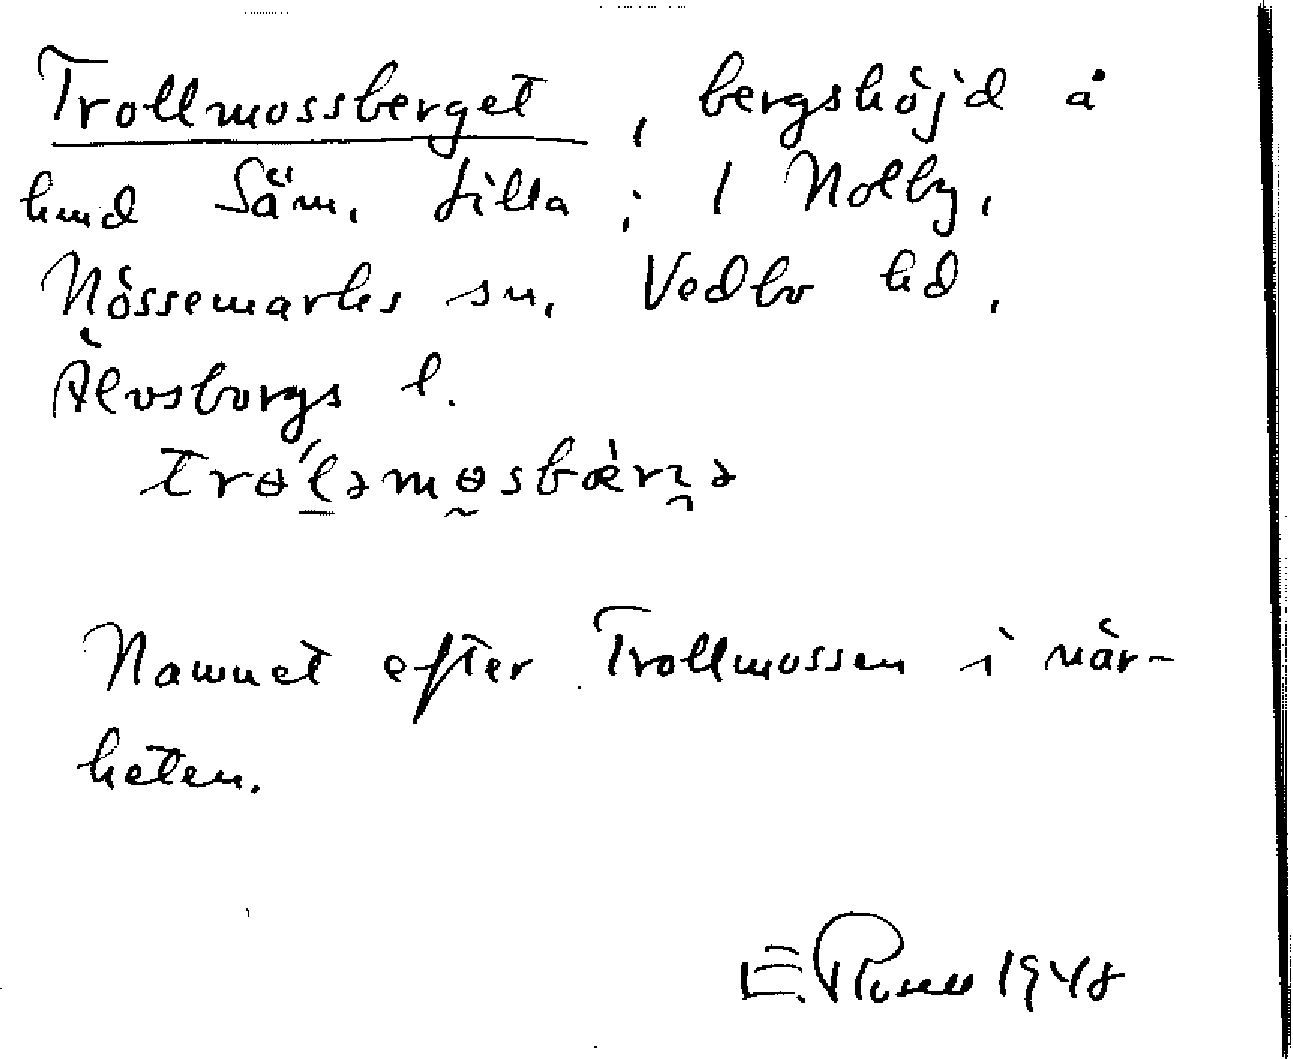 Trollmossberget, bergshöjd å
hmd Säm. Lilla; 1 Nolby,
Nössemarks sn, Vedbo hd,
Älvsborgs l.
Namnet efter Trollmossen i när-
heten.
E. 1948